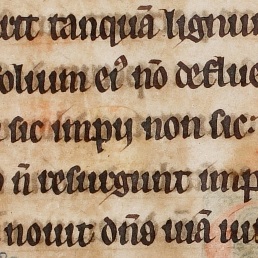 tanquā lignum
folium eiꝰ nō deflue
sic impij non sic:
n̄ resurgunt imp
nouit dn̄s uiā ius